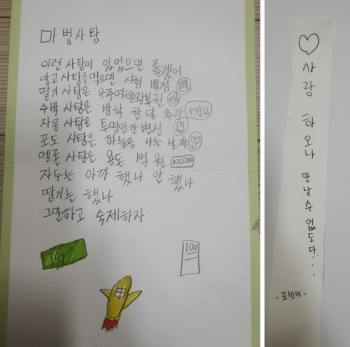 마법사탕
이런 사탕이 있었으면 좋겠어
망고 사탕을 먹으면 시험 백점 100
딸기 사탕은 우주여행왕복권
수박 사탕은 방학 한 달 추가
자몽 사탕은 투명인간 변신
포도 사탕은 하늘을 나는 날개
멜론 사탕은 용돈 1억 원
자두는 아까 했나 안 했나
딸기는 했나
그만하고 숙제하자
100
♡ 사랑 하오나 만날 수 없도다...